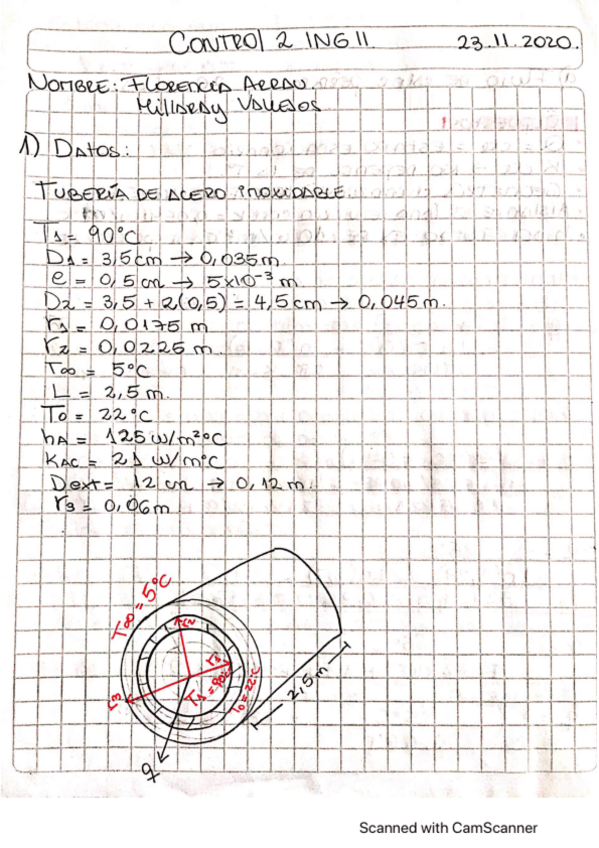 CONTROl 2 ING II.
23.11.2020.
NOMBRE: FLORENCIA ARRAU.
MillARAY VALLEJOS
1) DATOS:
TUBERÍA DE ACERO INOXIDABLE
T1 = 90°C
D1 = 3,5cm → 0,035m
e = 0,5 cm → 5x10⁻³ m
D2 = 3,5 + 2(0,5) = 4,5cm → 0,045m.
r1 = 0,0175 m
r2 = 0,0225 m
T∞ = 5°C
L = 2,5 m.
T0 = 22°C
hA = 125 w/m²°C
KAC = 21 w/m°C
Dext = 12 cm → 0,12 m.
r3 = 0,06m
T∞ = 5°C
r3
T1 = 90°C
T0 = 22°C
2,5 m
q
Scanned with CamScanner